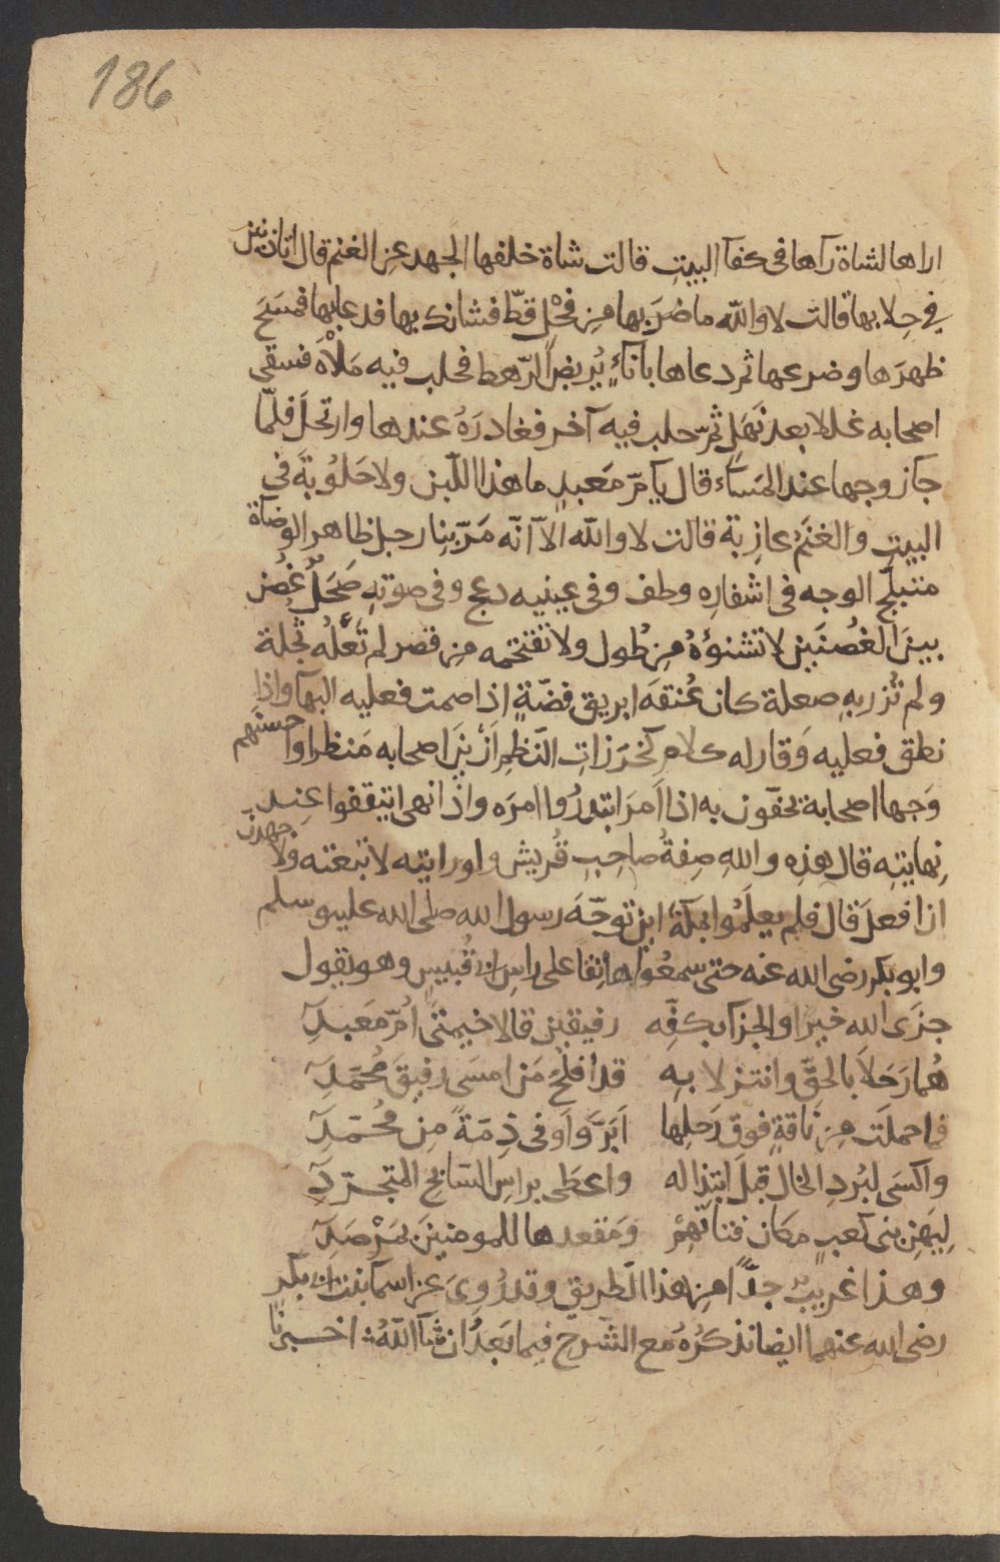 186
اراها لشاة رآها في كفآ البيت قالت شاة خلفها الجهد عن الغنم قال اتاذنين
في حِلابها قالت لا والله ما ضرَبها من فحْلٍ قطّ فشانك بها فدعا بها فمسَحَ
ظهرَها وضرعها ثم دعاها باناءٍ يُربِضُ الرّهط فحلب فيه مَلأه فسقى
اصحابه عللا بعد نَهَلٍ ثمّ حلب فيه آخر فغادرَهُ عندها وارتحلَ فلمّا
جآ زوجها عند المَسآء قال يآ مّ مَعبدٍ ما هذا اللّبن ولا حَلُوبةَ في
البيت والغنَمُ عازِبة قالت لا والله الاّ انّه مَرّ بِنا رجل ظاهر الوضآة
متبلّج الوجه في اشفارِه وطف وفي عينيه دعج وفي صوتهِ صَحَلٌ غُصْن
بينَ الغُصنَين لا تشنؤهُ من طُول ولا تقتحمه من قصر لم تَعْلُه ثُجلة
ولم تُزرِ بهِ صعلة كان عُنقَه ابريق فضّةٍ اذا صمت فعليه البهآ واذا
نطق فعليه وَقار له كلام كخرَزاتِ النّظم ازْيَن اصحابه مَنظرا واحسنهم
وَجها اصحابة يحفّون به اذا اَمرَ ابتدرُوا امرَه واذا نهى اتيقفوا عِند
نِهايته قال هذه واللهِ صِفةُ صاحِبِ قُريش ولو رايته لاتبعته ولاجهدن
ان افعلَ قال فلم يعلَمُوا بمكّة اين توجّهَ رسول الله صلى الله عليه وسلم
وابو بكر رضى الله عنه حتى سمعُوا هاتِفا على راسِ ابى قُبيسٍ وهو يقول
جزَى الله خيرا والجزآ بكفّه رفيقين قالا خيمتَىْ اُمّ مَعبدِ
هُما رَحَلاَ بالحقّ وانتزلا بهِ قد افلحَ مَن امسَى رفيقَ مُحمّدِ
فما حملَت مِن نَاقةٍ فوق رَحلِها ابَرَّ واَوفى ذِمّةً مِن مُحمّدِ
واكسَى لبُردِ الخال قبلَ ابتِذاله واعطى براسِ السّابح المتجرّدِ
لِيَهن بنى كعبٍ مكان فتاتهِمْ وَمَقعدها للمومنينَ بمَرْصَدِ
وهذا غريبٌ جدًّا من هذا الطريق وقد رُوِىَ عن اسمآ بنت ابى بكر
رضى الله عنهما ايضا نذكُرُهُ مع الشّرح فيما بَعدُ ان شآ اللّهُ اخبرنا